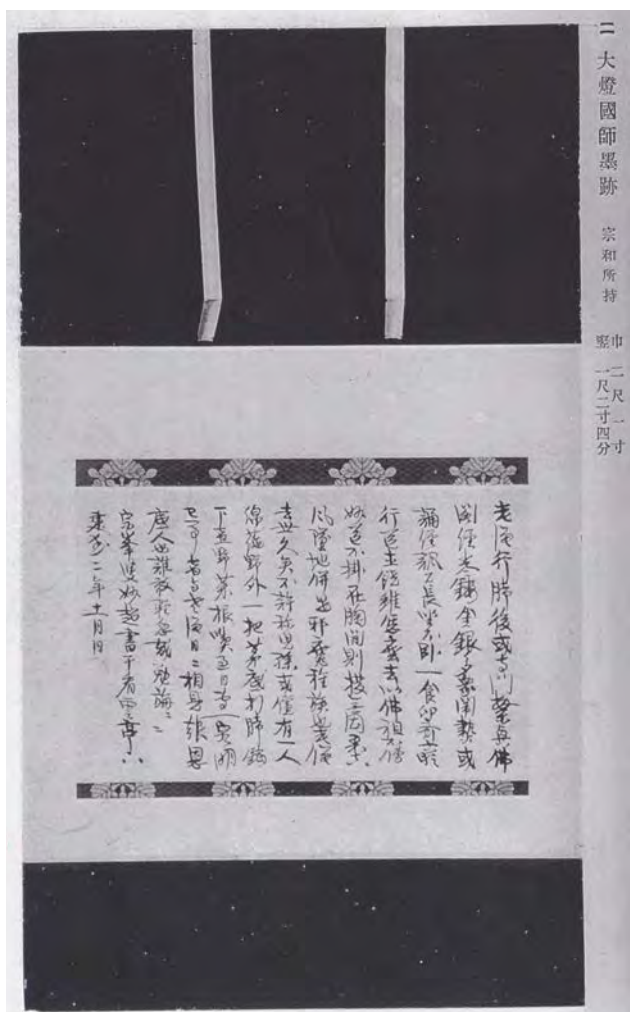 二 大燈國師墨跡 宗和所持
巾 二尺一寸
竪 一尺二寸四分
老僧行脚後或寺門繁興佛
閣經卷鏤金銀多衆閙熱或
誦經諷呪長坐不臥一食卯齋
行道直饒雖恁麼去以佛祖不傳
妙道不掛在胸間則撥無因果
風墮地併是邪魔種族也老僧
去世久矣不許稱兒孫或儻有一人
綿絶野外一把茅底折脚鐺
下煮野菜根喫過日專一究明
己事者与老僧日々相見報恩
底人也誰敢輕忽哉勉旃々々
宗峯叟妙超書于看雲亭
建武二年十一月日